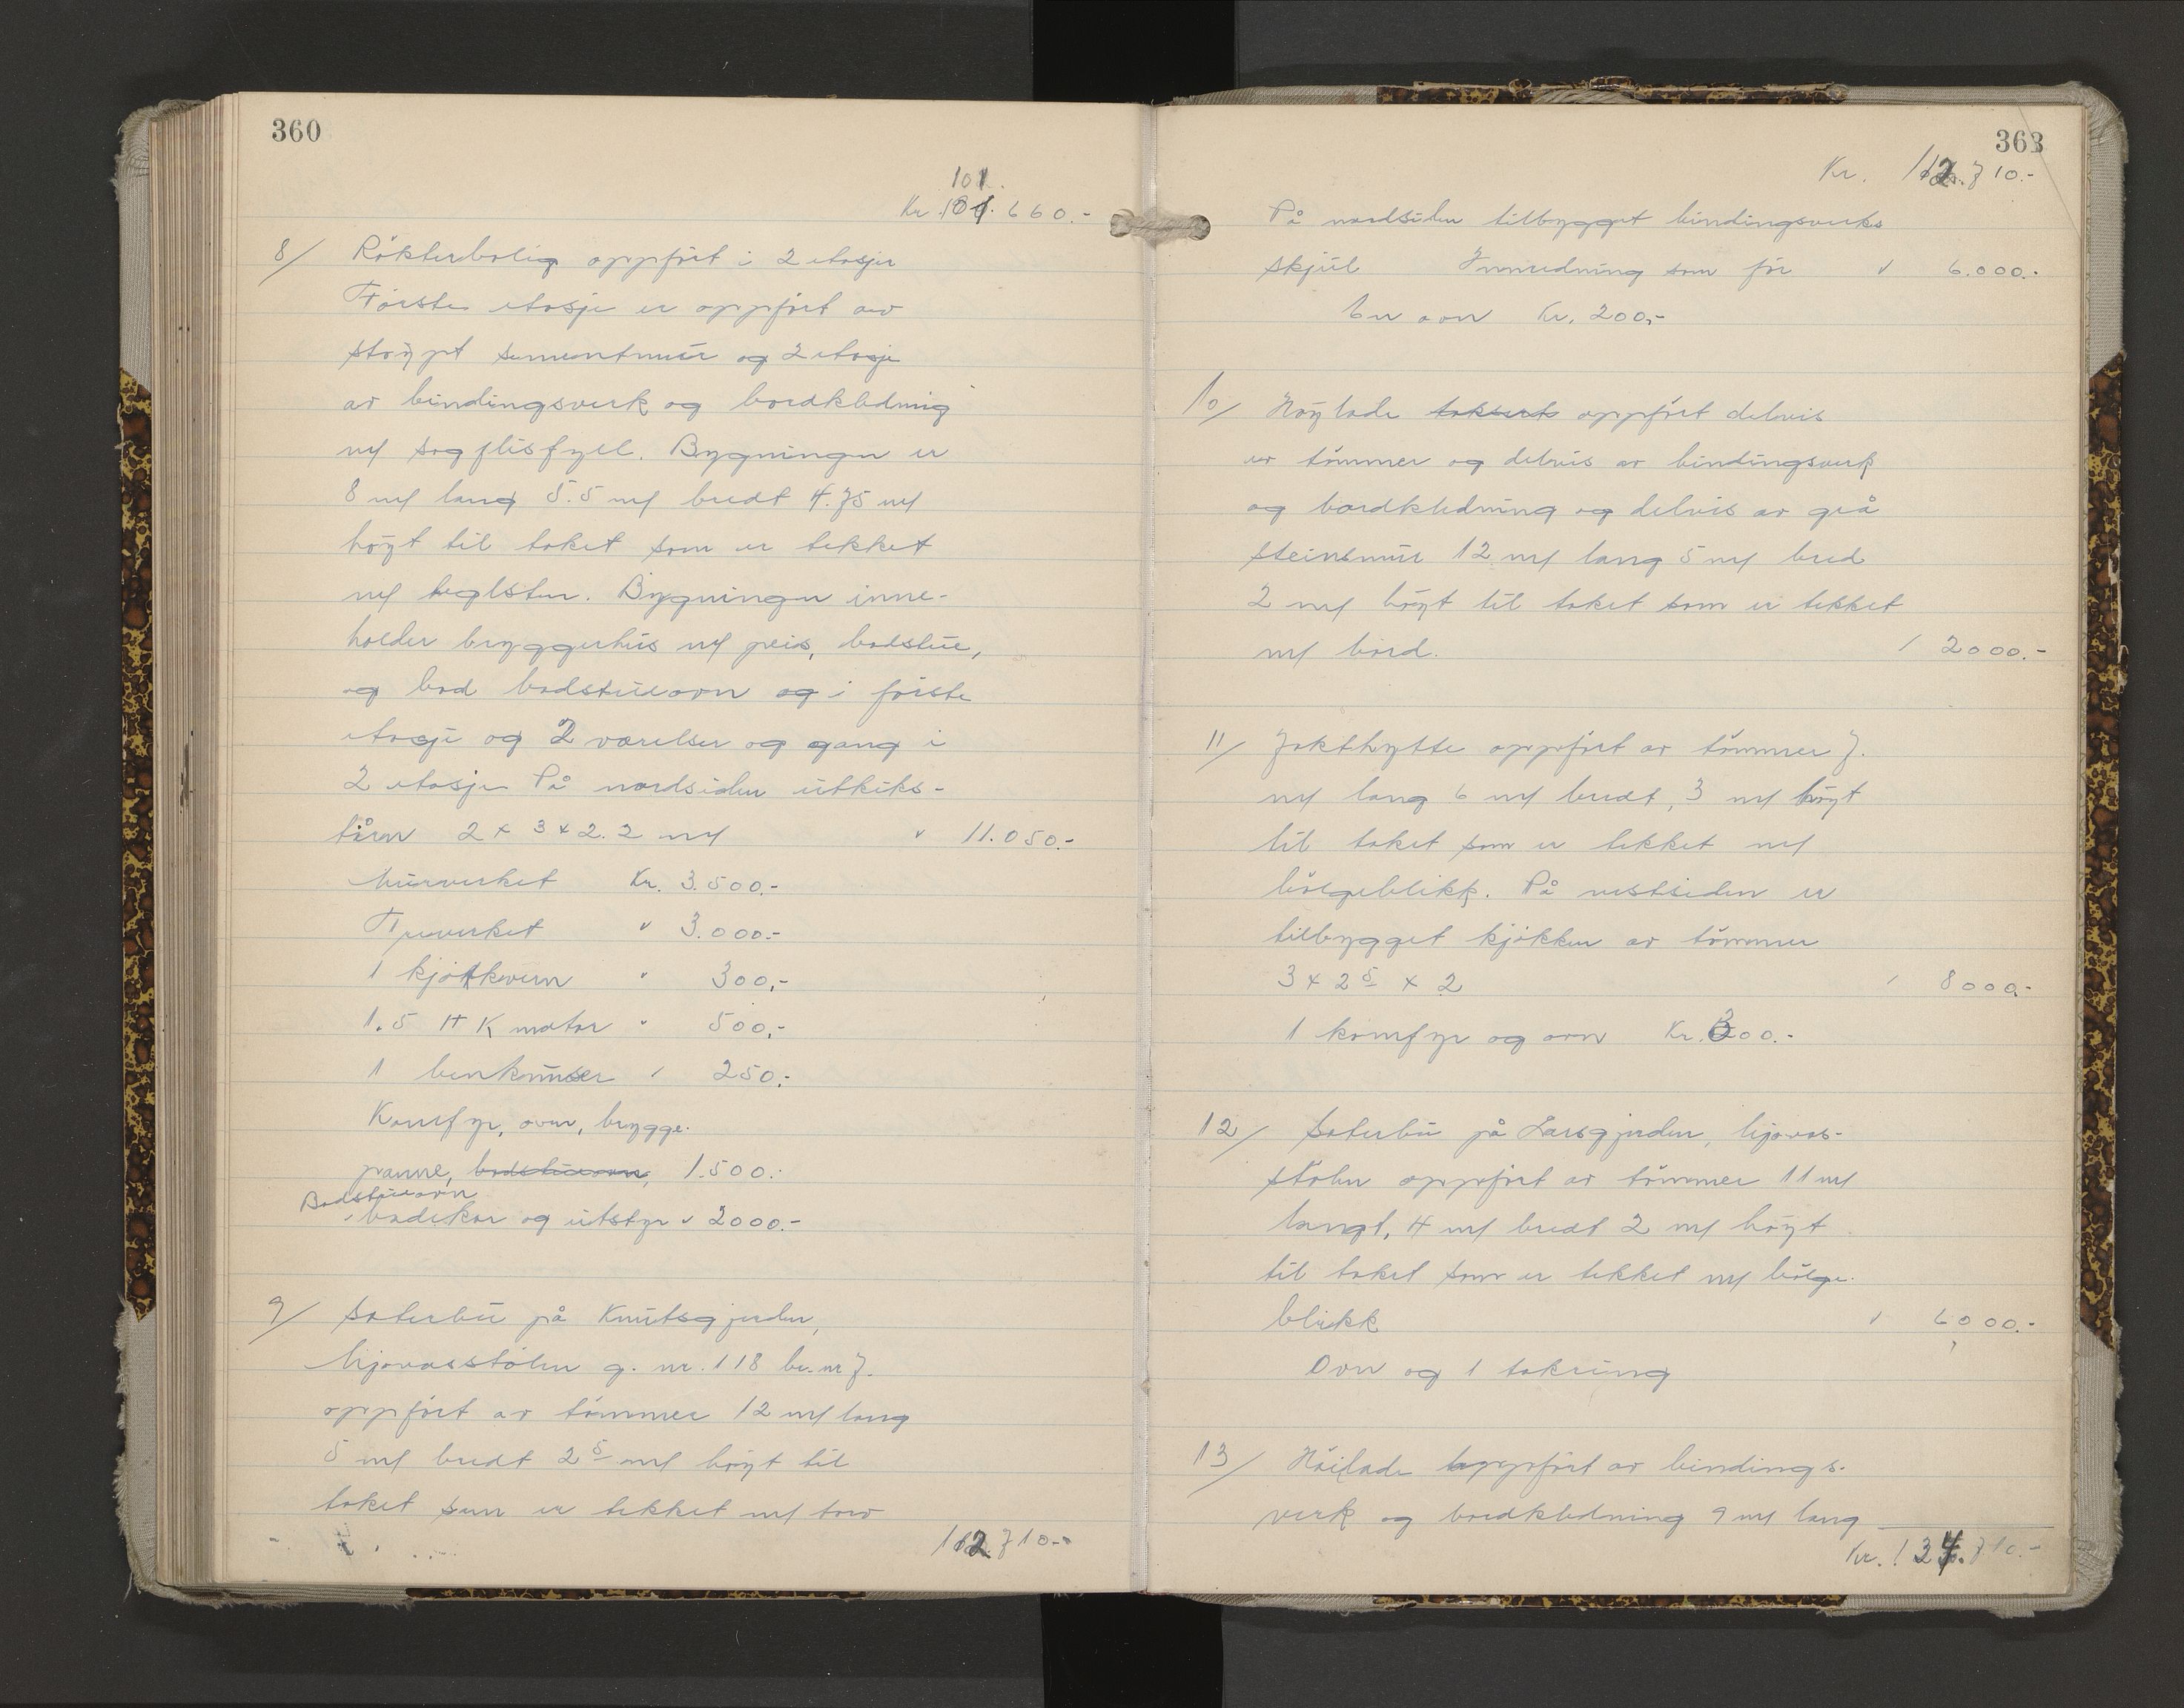 360
101.
Kr. 101.660.-
8/ Rökterbolig oppfört i 2 etasjer
Förste etasje er oppfört av
støypt sementmur og 2 etasje
av bindingsverk og bordkledning
m/ sagflisfyll. Bygningen er
8 m/ lang 5.5 m/ bredt 4.75 m/
høyt til taket som er tekket
m/ teglsten. Bygningen inne-
holder bryggerhus m/ peis, badstue,
og bad badstueovn og i förste
etasje og 2 værelser og gang i
2 etasje På nordsiden utkiks-
tårn 2 x 3 x 2.2 m/ " 11.050.-
Murverket Kr. 3.500.-
Treverket " 3.000.-
1 kjøtkvern " 300,-
1.5 HK motor " 500,-
1 benknuser " 250,-
Komfyr, ovn, brygge-
panne, badstueovn, 1.500.-
Badstueovn
badekar og utstyr " 2000.-
9/ Sæterbu på Knutsgjerden,
Mjovasstölen g. nr. 118 br. nr 7.
oppfört av tömmer 12 m/ lang
5 m/ bredt 2 5 m/ høyt til
taket som er tekket m/ torv
112.710.-
363
Kr. 112.710.-
På nordsiden tilbygget bindingsverks
skjul Innredning som för " 6.000.-
En ovn Kr. 200,-
10/ Høylade taksert oppfört delvis
av tömmer og delvis av bindingsverk
og bordkledning og delvis av grå
steinsmur 12 m/ lang 5 m/ bred
2 m/ høyt til taket som er tekket
m/ bord. " 2000.-
11/ Jakthytte oppfört av tömmer 7.
m/ lang 6 m/ bredt, 3 m/ høyt
til taket som er tekket m/
bölgeblikk. På vestsiden er
tilbygget kjökken av tömmer
3 x 2 5 x 2 " 8000,-
1 komfyr og ovn Kr. 300.-
12/ Sæterbu på Larsgjerden, Mjovas-
stölen oppfört av tömmer 11 m/
langt, 4 m/ bredt 2 m/ høyt
til taket som er tekket m/ bölge-
blikk " 6000.-
Ovn og 1 takring
13/ Höilade oppfört av bindings-
verk og bordkledning 9 m/ lang
Kr. 134.710.-